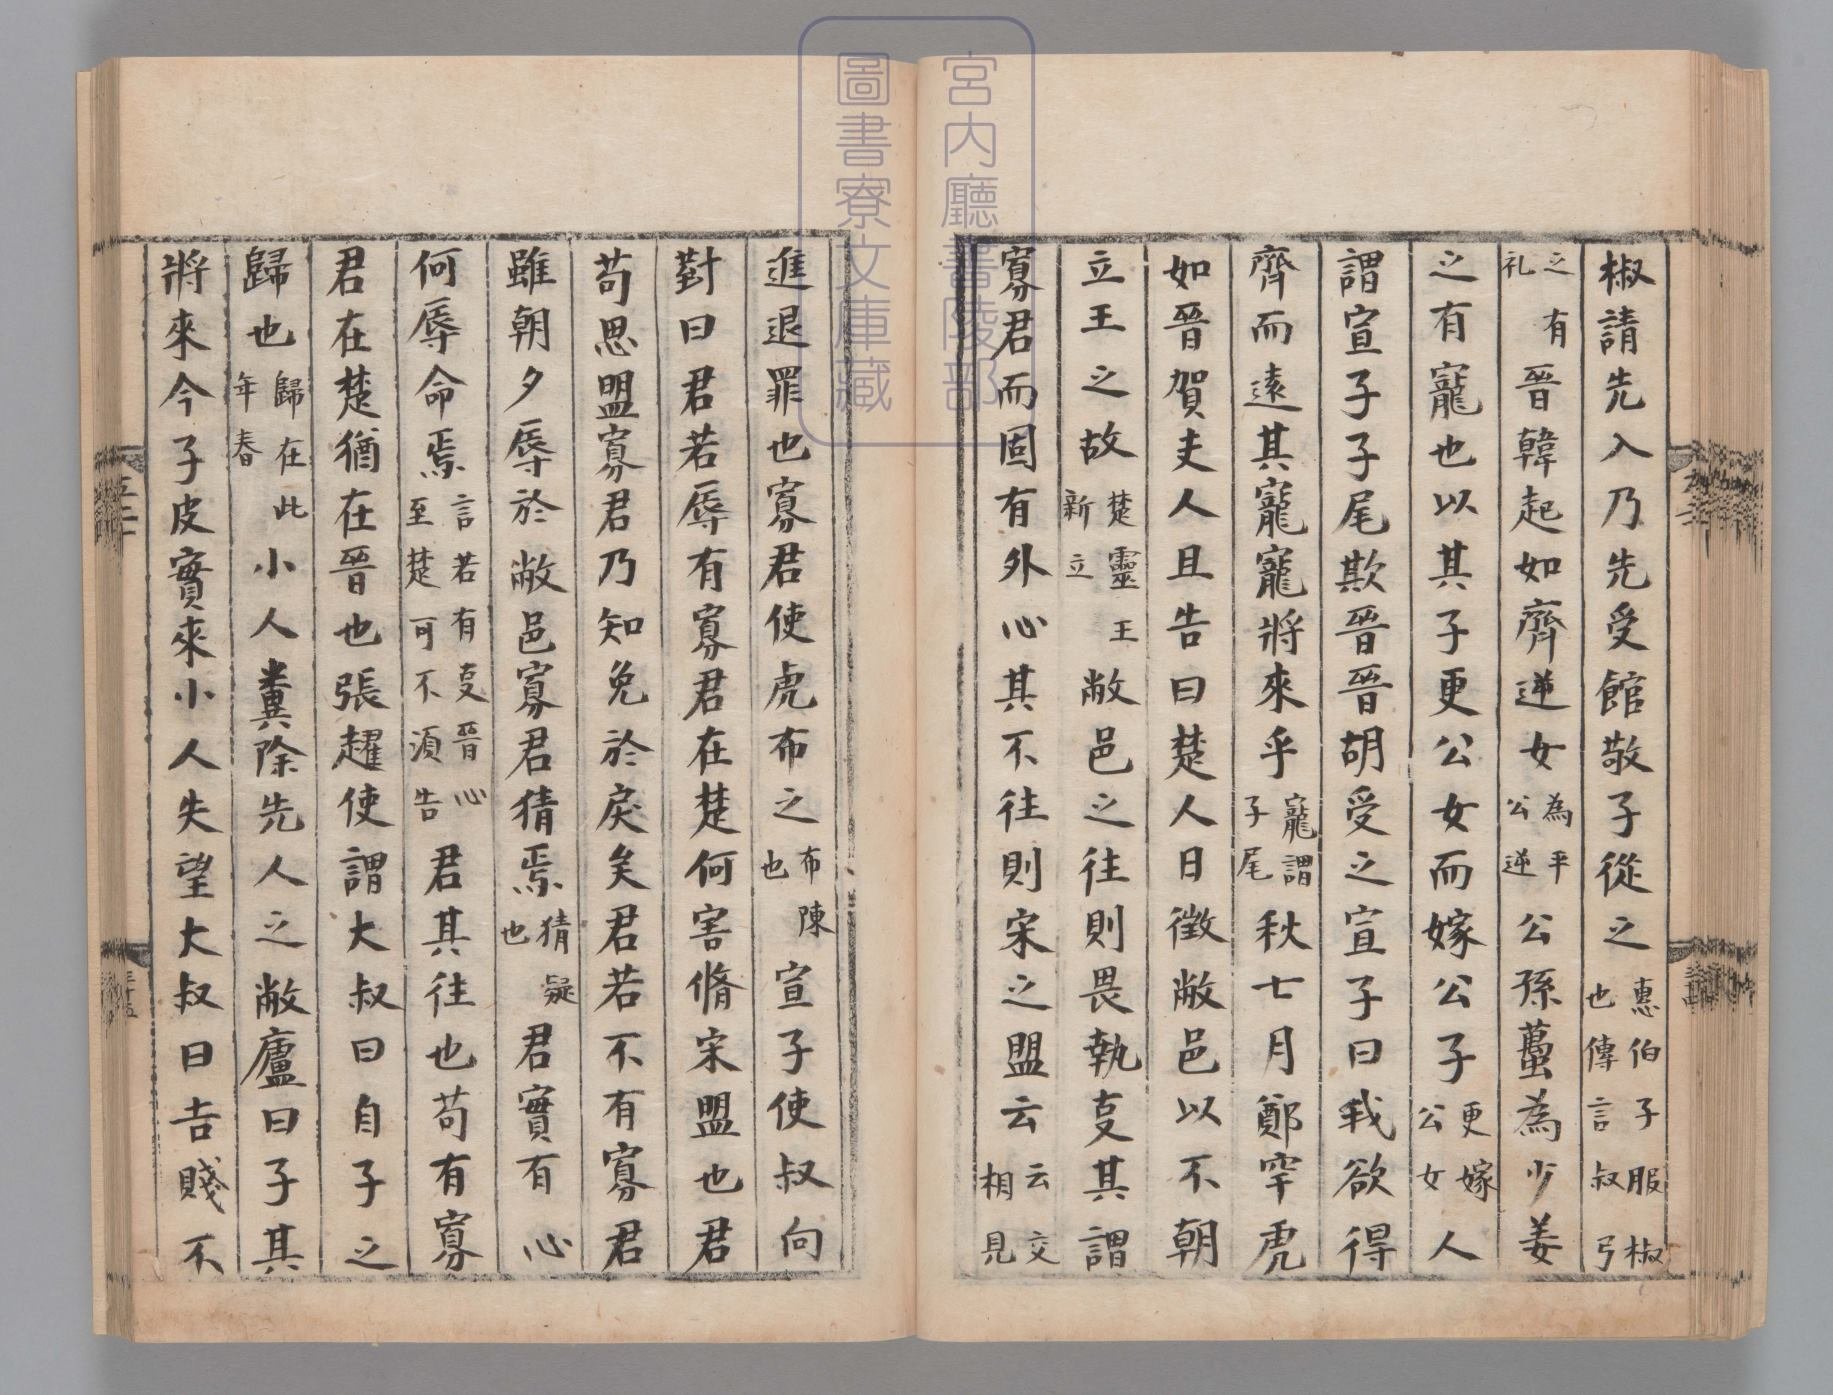 椒請先入乃先受館敬子從之惠伯子服椒也傳言叔弓
之有礼晉韓起如齊逆女為平公逆公孫蠆為少姜
之有寵也以其子更公女而嫁公子更嫁公女人
謂宣子子尾欺晉晉胡受之宣子曰我欲得
齊而遠其寵寵將來乎寵謂子尾秋七月鄭罕虎
如晉賀夫人且告曰楚人日徴敝邑以不朝
立王之故楚靈王新立敝邑之往則畏執叓其謂
寡君而固有外心其不往則宋之盟云云交相見
進退罪也寡君使虎布之布陳也宣子使叔向
對曰君若辱有寡君在楚何害脩宋盟也君
苟思盟寡君乃知免於戾矣君若不有寡君
雖朝夕辱於敝邑寡君猜焉猜疑也君實有心
何辱命焉言若有叓晉心至楚可不須告君其往也苟有寡
君在楚猶在晉也張趯使謂大叔曰自子之
歸也歸在此年春小人糞除先人之敝廬曰子其
將來今子皮實來小人失望大叔曰吉賤不
宮内廳書陵部
圖書寮文庫藏